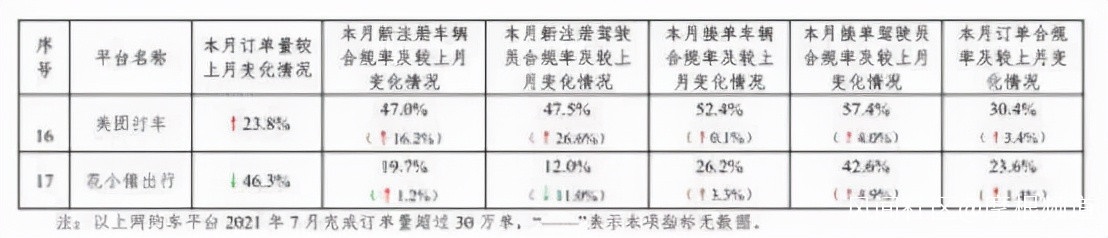 序号 平台名称 本月订单量较上月变化情况 本月新注册车辆合规率及较上月变化情况 本月新注册驾驶员合规率及较上月变化情况 本月接单车辆合规率及较上月变化情况 本月接单驾驶员合规率及较上月变化情况 本月订单合规率及较上月变化情况
16 美团打车 ↑23.8% 47.0% 47.5% 52.4% 57.4% 30.4%
(↑16.3%) (↑3.4%)
17 花小猪出行 ↓46.3% 19.7% 12.0% 26.2% 42.6% 23.6%
(↑1.2%)
注：以上网约车平台2021年7月完成订单量超过30万单，“——”表示本项指标无数据。